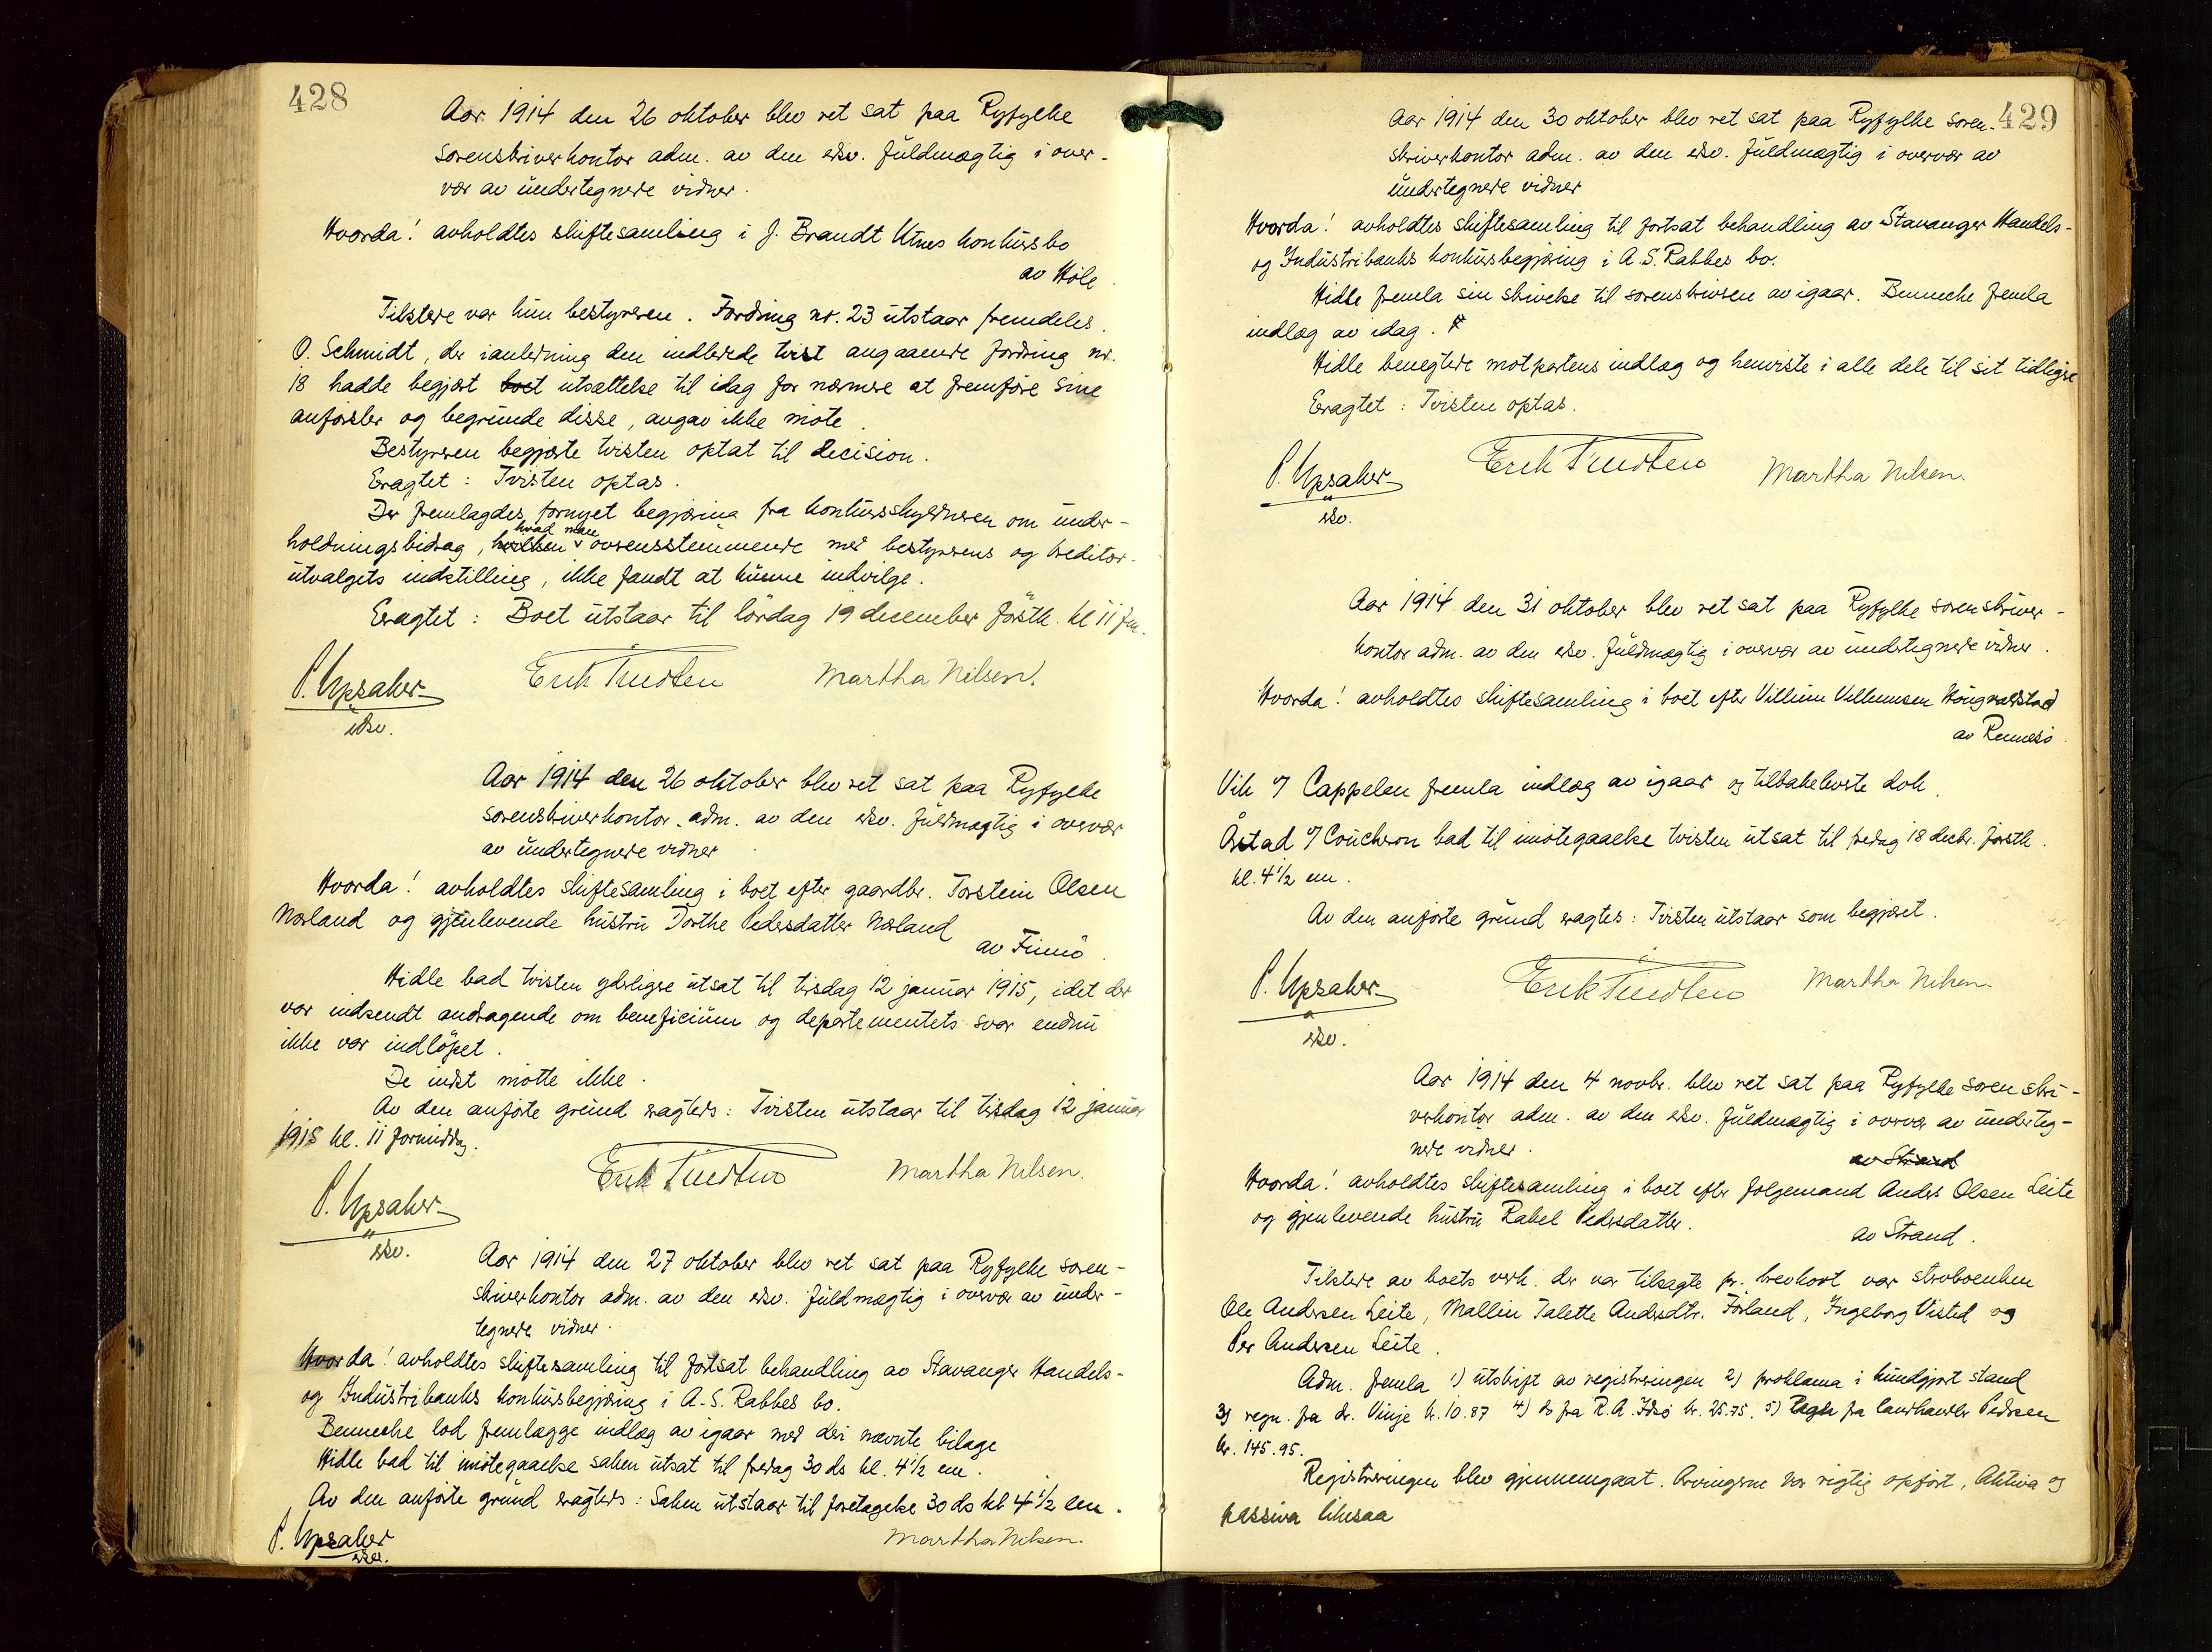 428
Aar 1914 den 26 oktober blev ret sat paa Ryfylke
sorenskriverkontor adm. av den edsv. fuldmægtig i over-
vær av undertegnede vidner.
Hvorda! avholdtes skiftesamling i J. Brandt Utnes konkursbo
av Høle.
Tilstede var kun bestyreren. Fordring nr. 23 utstaar fremdeles.
O. Schmidt, der i anledning den indledede tvist angaaende fordring nr.
18 hadde begjært boet utsættelse til idag for nærmere at fremføre sine
anførsler og begrunde disse, avgav ikke møte.
Bestyreren begjærte tvisten optat til decision.
Eragtet: Tvisten optas.
Der fremlagdes fornyet begjæring fra konkursskyldneren om under-
hvad man
holdningsbidrag, hvilken overensstemmende med bestyrerens og kreditor-
utvalgets indstilling, ikke fandt at kunne indvilge.
Eragtet: Boet utstaar til lördag 19 december förstk. kl 11 fm.
P. Upsaker Erik Tindten Martha Nilsen.
edsv.
Aar 1914 den 26 oktober blev ret sat paa Ryfylke
sorenskriverkontor adm. av den edsv. fuldmægtig i overvær
av undertegnede vidner
Hvorda! avholdtes skiftesamling i boet efter gaardbr. Torstein Olsen
Næsland og gjenlevende hustru Dorthe Pedersdatter Næsland
av Finnö.
Hidle bad tvisten yderligere utsat til tirsdag 12 januar 1915, idet der
var indsendt andragende om beneficium og departementets svar endnu
ikke var indlöpet.
De indst møtte ikke.
Av den anførte grund eragtes: Tvisten utstaar til tirsdag 12 januar
1915 kl. 11 formiddag.
Erik Tindten Martha Nilsen.
P. Upsaker
edsv.
Aar 1914 den 27 oktober blev ret sat paa Ryfylke soren-
skriverkontor adm. av den edsv. fuldmægtig i overvær av under-
tegnede vidner.
Hvorda! avholdtes skiftesamling til fortsat behandling av Stavanger Handels-
og Industribanks konkursbegjæring i A.S. Rabbes bo.
Benneche lod fremlægge indlæg av igaar med deri nævnte bilage
Hidle bad til imøtegaaelse saken utsat til fredag 30 ds kl. 4½ em.
Av den anførte grund eragtes: Saken utstaar til foretagelse 30 ds kl 4½ em.
P. Upsaker Martha Nilsen.
edsv.
429
Aar 1914 den 30 oktober blev ret sat paa Ryfylke soren-
skriverkontor adm. av den edsv. fuldmægtig i overvær av
undertegnede vidner
Hvorda! avholdtes skiftesamling til fortsat behandling av Stavanger Handels-
og Industribanks konkursbegjæring i A.S. Rabbes bo.
Hidle fremla sin skrivelse til sorenskriveren av igaar. Benneche fremla
indlæg av idag.
Hidle benegtede motpartens indlæg og henviste i alle dele til sit tidligere
Eragtet: Tvisten optas.
P. Upsaker Erik Tindten Martha Nilsen.
edsv.
Aar 1914 den 31 oktober blev ret sat paa Ryfylke sorenskriver-
kontor adm. av den edsv. fuldmægtig i overvær av undertegnede vidner.
Hvorda! avholdtes skiftesamling i boet efter Villum Villumsen Haugvaldstad
av Rennesö.
Vik & Cappelen fremla indlæg av igaar og tilbakeleverte dok.
Årstad & Coucheron bad til imøtegaaelse tvisten utsat til fredag 18 decbr. førstk.
kl. 4½ em.
Av den anførte grund eragtes: Tvisten utstaar som begjæret.
P. Upsaker Erik Tindten Martha Nilsen.
edsv.
Aar 1914 den 4 novbr. blev ret sat paa Ryfylke sorenskri-
verkontor adm. av den edsv. fuldmægtig i overvær av underteg-
nede vidner.
av Strand
Hvorda! avholdtes skiftesamling i boet efter følgemand Anders Olsen Leite
og gjenlevende hustru Rakel Pedersdatter.
av Strand.
Tilstede av boets vedk. der var tilsagte pr. brevkort var stervboenken
Ole Andersen Leite, Mallin Talette Andersdtr. Førland, Ingeborg Visted og
Per Andersen Leite.
Adm. fremla 1) utskrift av registreringen 2) proklama i kundgjort stand
3) regn. fra dr. Vinje kr. 10.87 4) do fra R.A. Idsø kr. 25.75. 5) Regn fra landhandler Pedersen
kr. 145.95.
Registreringen blev gjennemgaat. Arvingerne var rigtig opført, Aktiva og
passiva likesaa